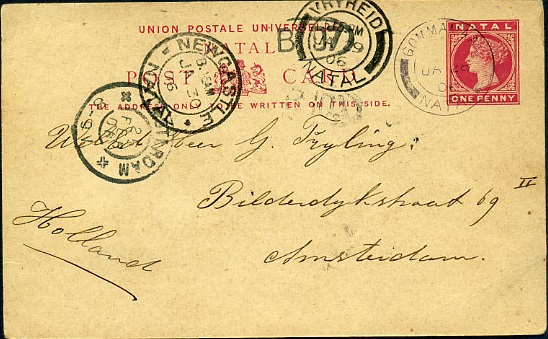 UNION POSTALE UNIVERSELLE
NATAL
POST CARD
THE ADDRESS ONLY TO BE WRITTEN ON THIS SIDE.
NATAL
ONE PENNY
VRYHEID
JA 29
06
NATAL
NEWCASTLE
JA 30
06
NATAL
AMSTERDAM
JA
NATAL
G. Tryling:
Bilderdykstraat 69 II
Amsterdam.
Holland